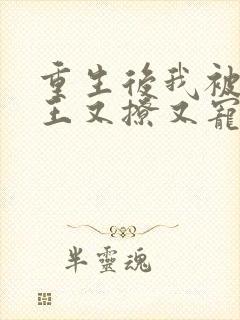 重生後我被
王又撩又寵
半靈魂